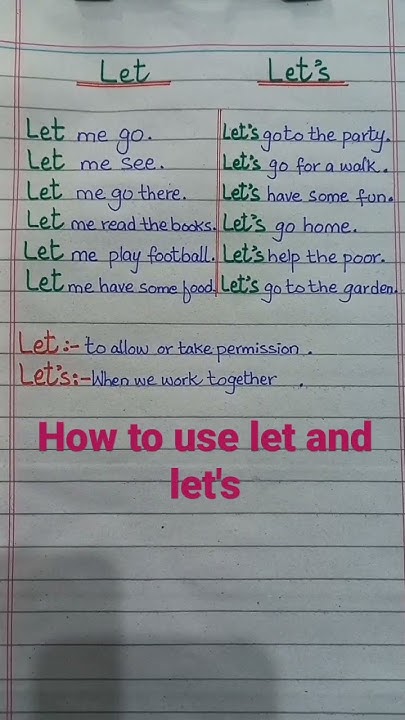 Let Let's
Let me go. Let's go to the party.
Let me see. Let's go for a walk.
Let me go there. Let's have some fun.
Let me read the books. Let's go home.
Let me play football. Let's help the poor.
Let me have some food. Let's go to the garden.
Let:- to allow or take permission.
Let's:- When we work together.
How to use let and
let's